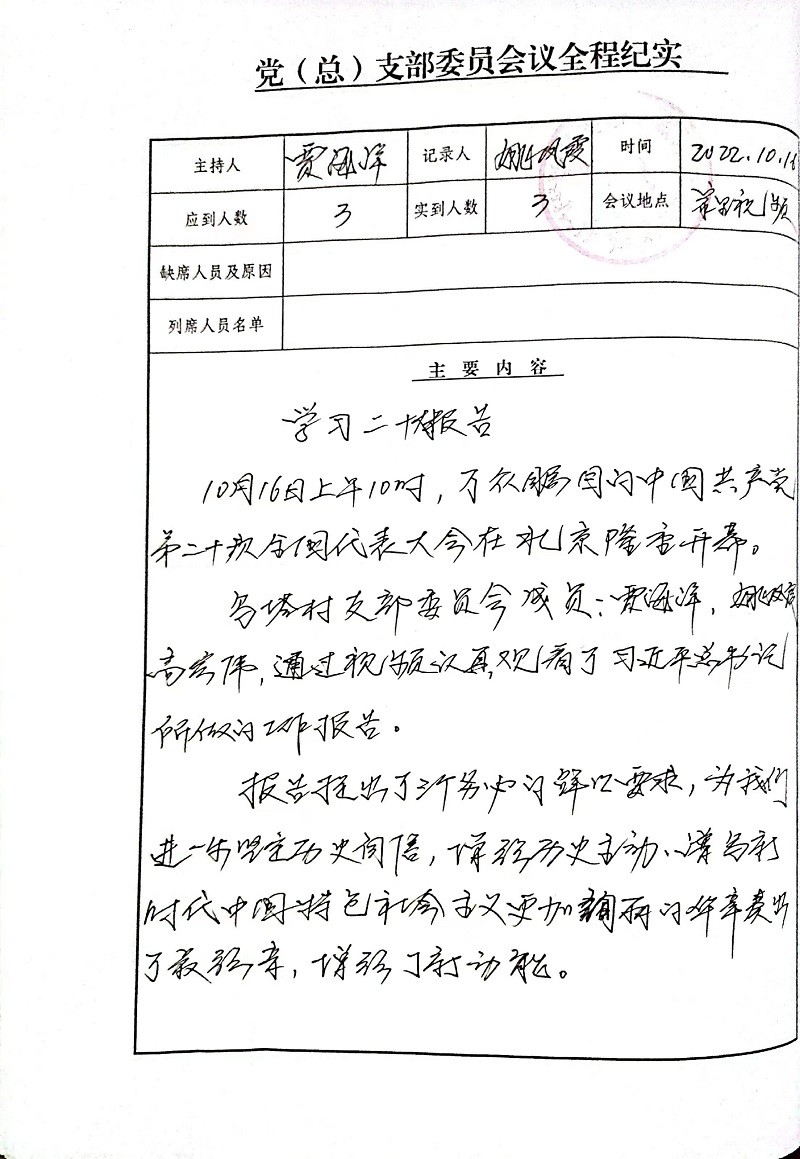 党（总）支部委员会议全程纪实
主持人 贾海洋 记录人 姚凤霞 时间 2022.10.16
应到人数 3 实到人数 3 会议地点 视频
缺席人员及原因
列席人员名单
主要内容
学习二十大报告
10月16日上午10时，万众瞩目的中国共产党
第二十次全国代表大会在北京隆重开幕。
乌塔村支部委员会成员：贾海洋，姚凤霞
高宏伟，通过视频认真观看了习近平总书记
所做的工作报告。
报告提出了三个务必的鲜明要求，为我们
进一步坚定历史自信，增强历史主动、谱写新
时代中国特色社会主义更加绚丽的华章发出
了最强音，增强了新动能。